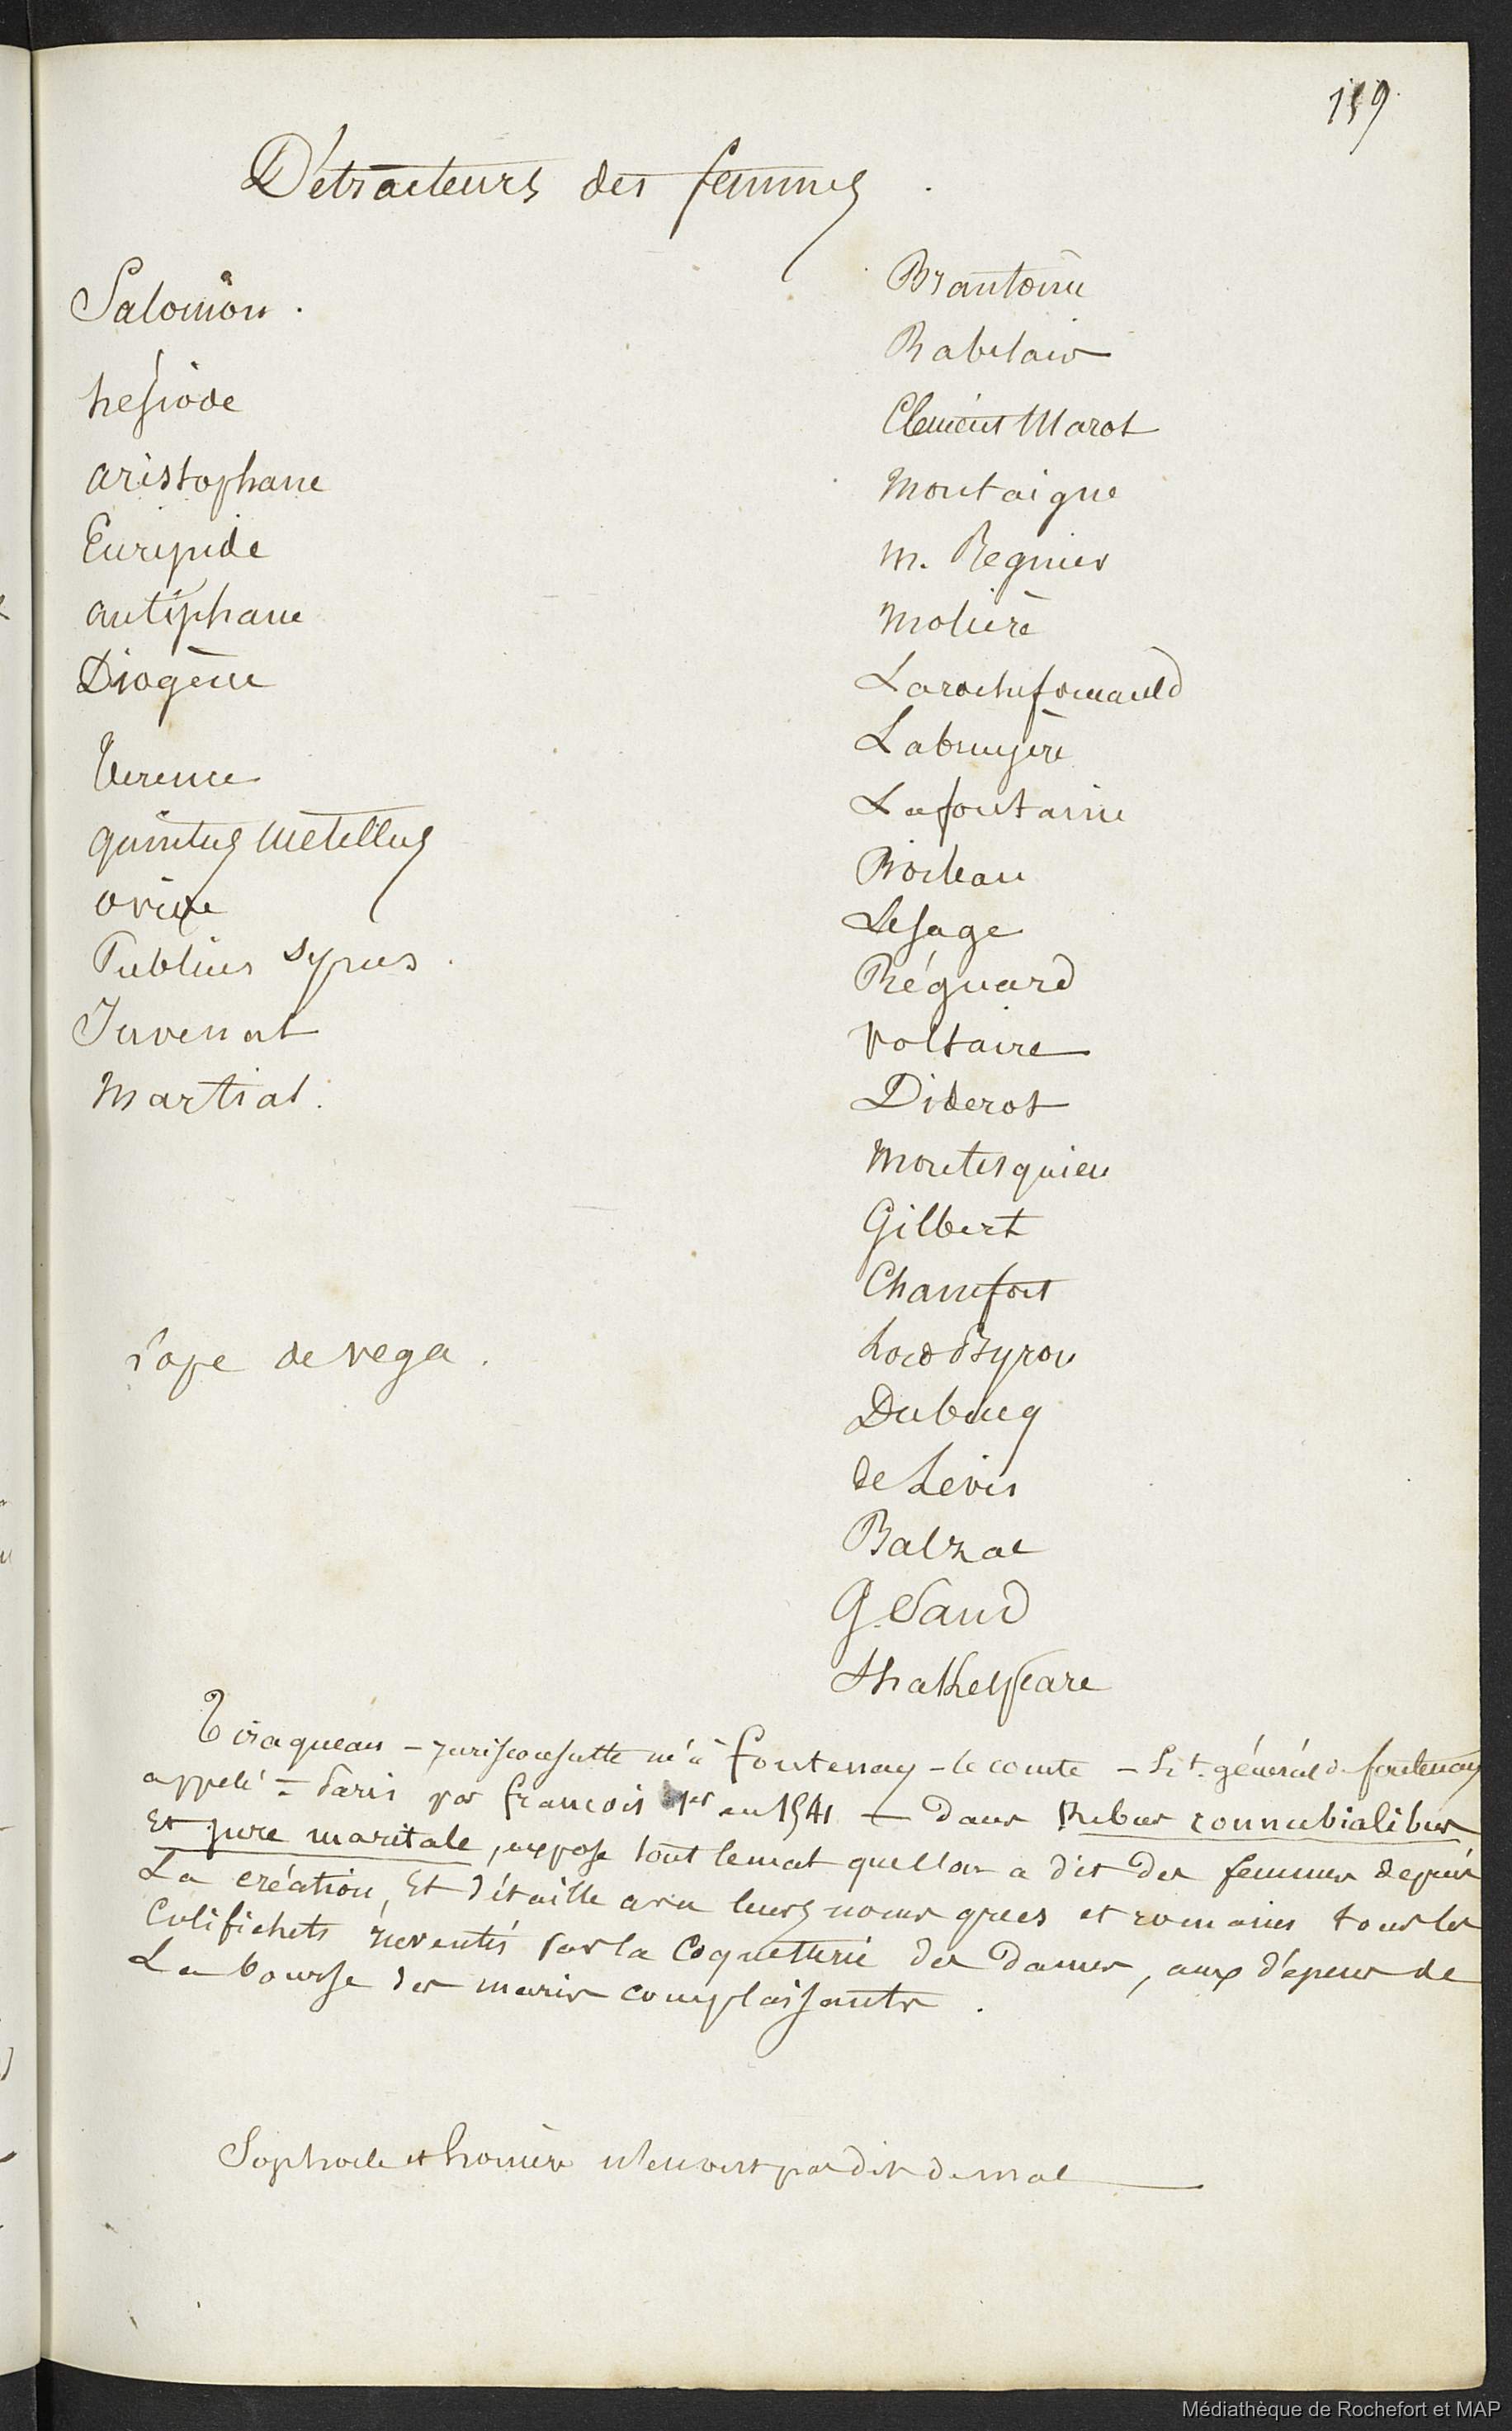 119
Détracteurs des femmes
Salomôn.
hésiode
aristophane
Euripide
antiphane
Diogène
Terence
quintus Metellus
ovide
Publius syrus.
Juvenal
Martial.
Lope de vega.
Brantome
Rabelais
Clement Marot
Montaigne
M. Regnier
Molière
Larochefoucauld
Labruyère
Lafontaine
Boileau
Lesage
Régnard
Voltaire
Diderot
Montesquieu
Gilbert
Chamfort
Lord Byron
Dubucq
de Levis
Balzac
G. Sand
Shakespeare
Tiraqueau – jurisconsulte né à fontenay-le comte – Lt. général de fontenay
appelé à Paris par francois 1er en 1541 – dans Rebus connubialibus
Et jure maritale, expose tout le mal que l'on a dit des femmes depuis
La création, Et détaille avec leurs noms grecs et romains tous les
Colifichets inventés par la Coquetterie des Dames, aux dépens de
La bourse des maris complaisants.
Sophocle et homère n'en ont pas dit de mal